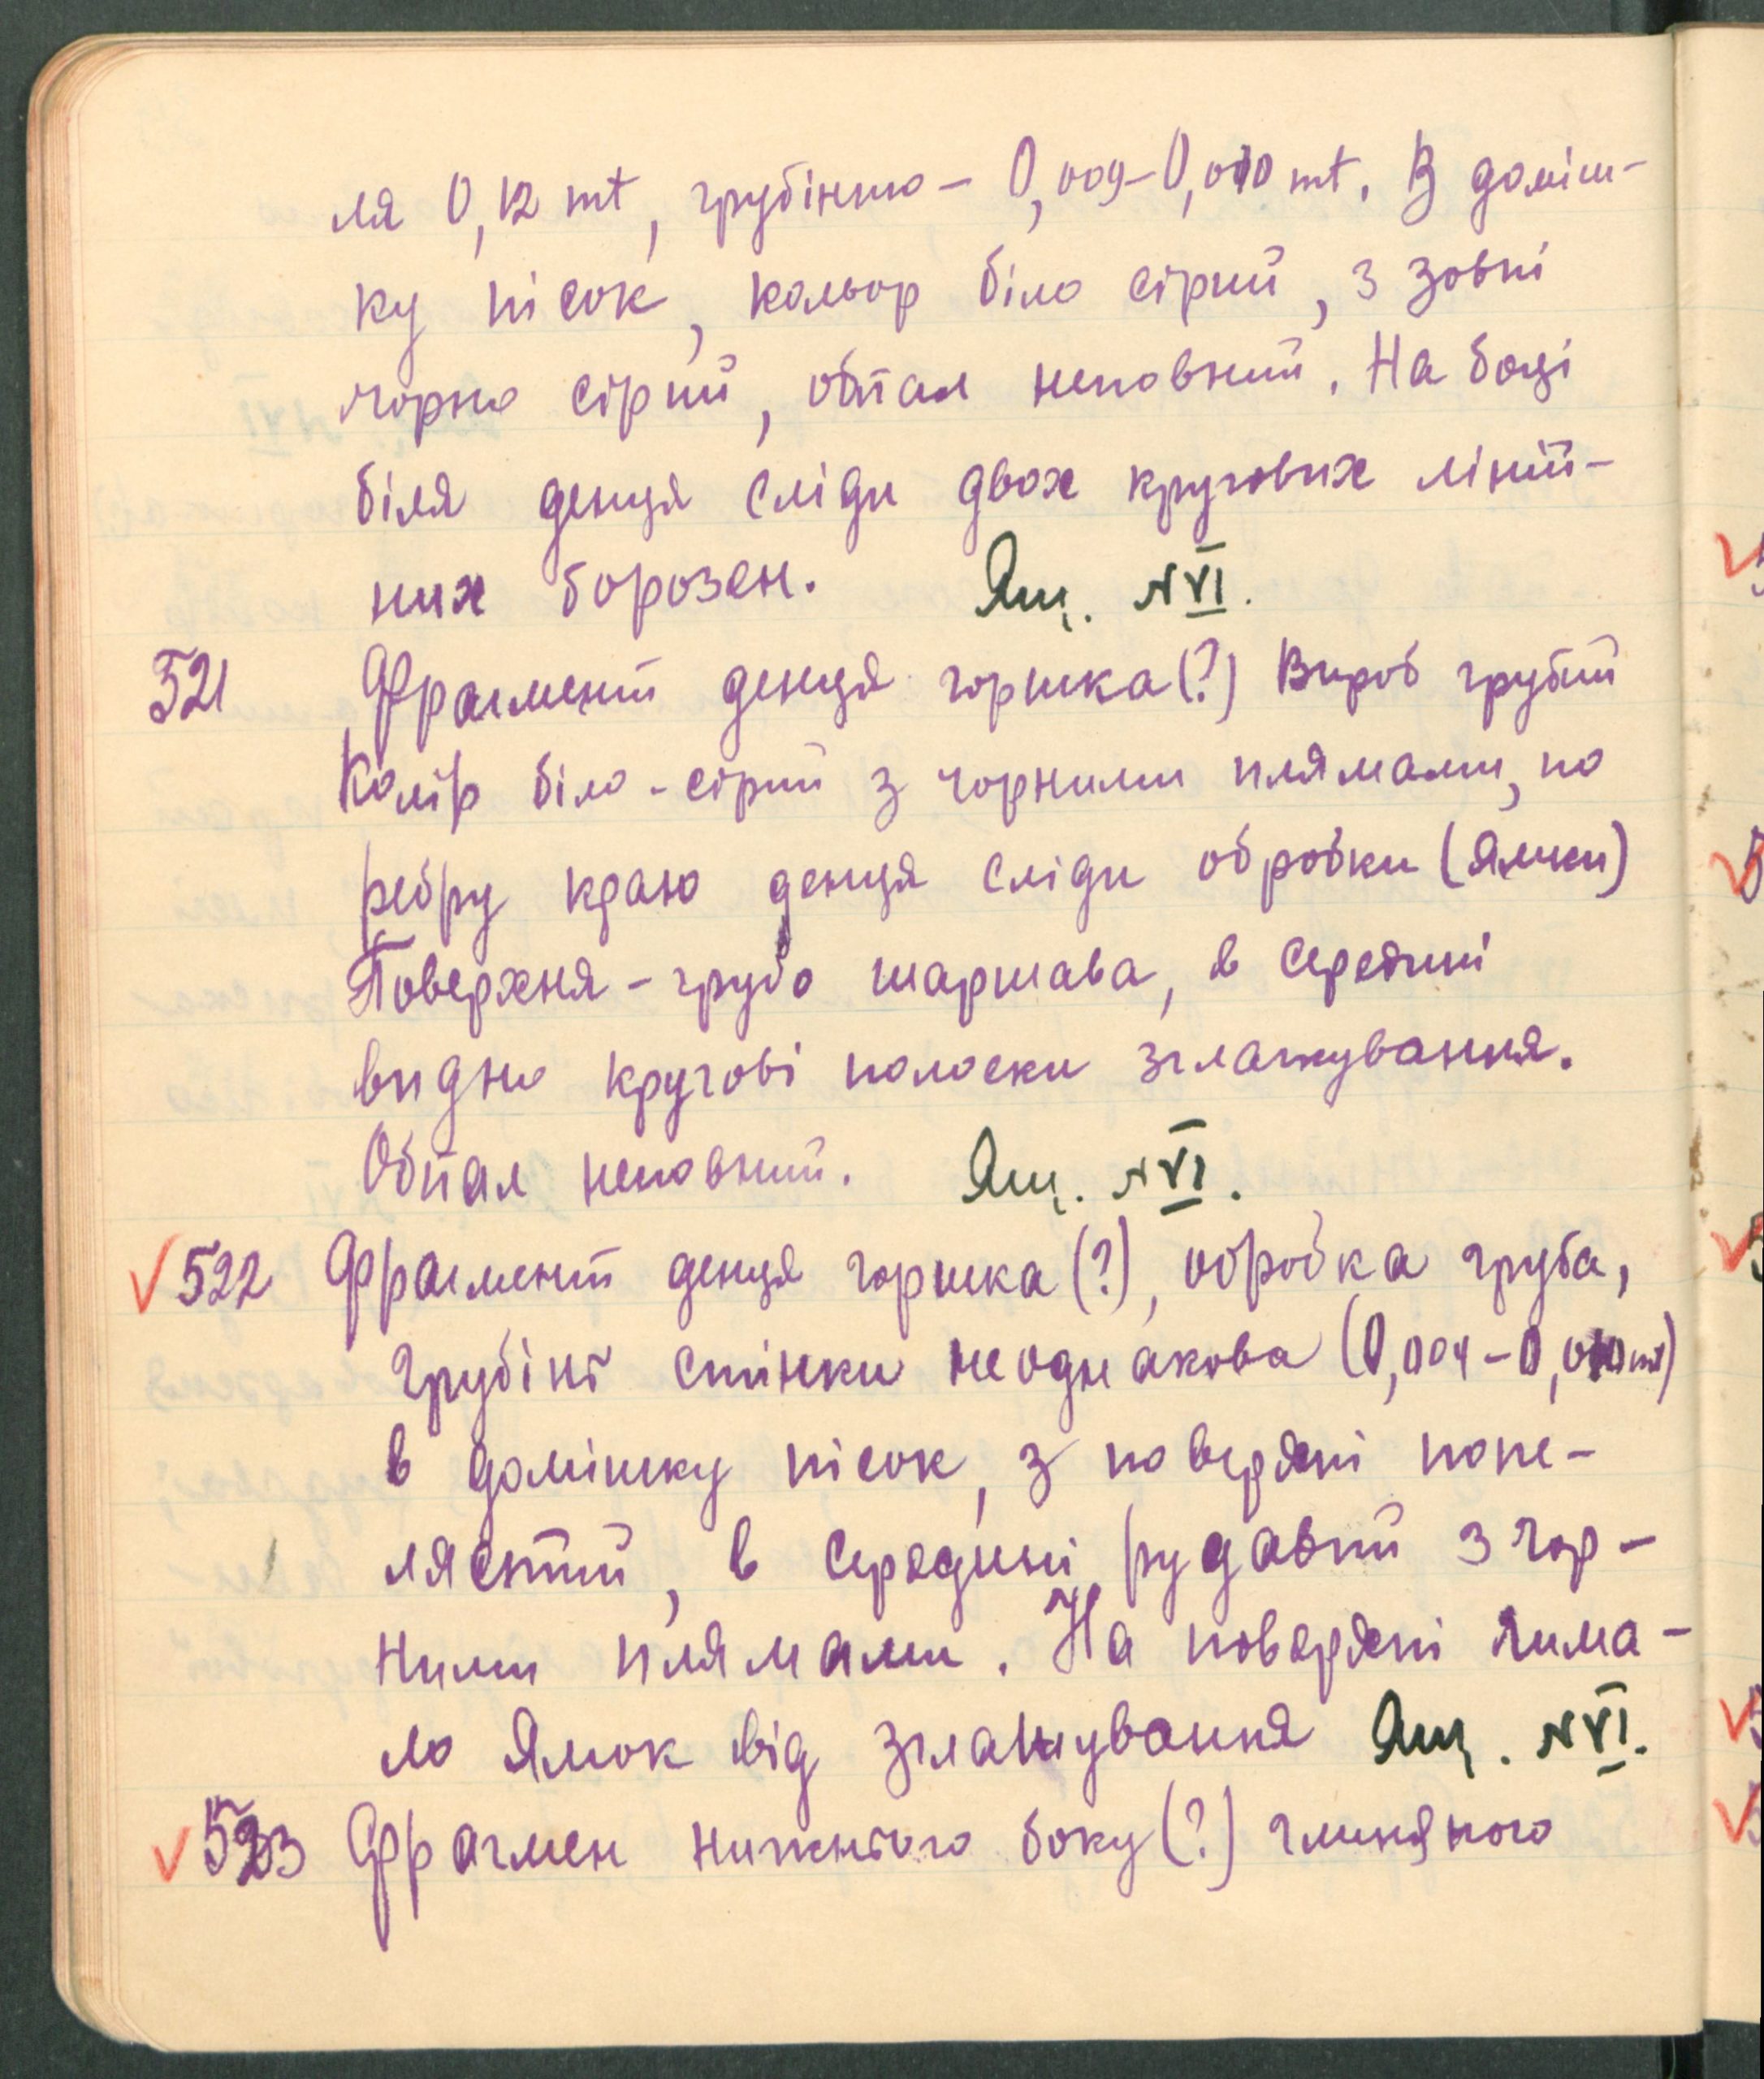 ля 0,12 mt, грубінню – 0,009–0,010 mt. В доміш-
ку пісок, кольор біло сірий, з зовні
чорно сірий, обпал неповний. На боці
біля денця сліди двох кругових ліній-
них борозен. Ящ. №VI.
521 Фрагмент денця горшка(?) Вироб грубий
Колір біло-сірий з чорними плямами, по
ребру краю денця сліди обробки (ямки)
Поверхня – грубо шаршава, в середині
видно кругові полоски злагжування.
Обпал неповний. Ящ. №VI.
✓ 522 Фрагмент денця горшка (?), обробка груба,
грубінь стінки неоднакова (0,004–0,010 mt)
в домішку пісок, з поверхні попе-
лястий, в середині рудавий з чор-
ними плямами. На поверхні чима-
ло ямок від згладжування Ящ. №VI.
✓ 523 Фрагмен нижнього боку(?) глиняного